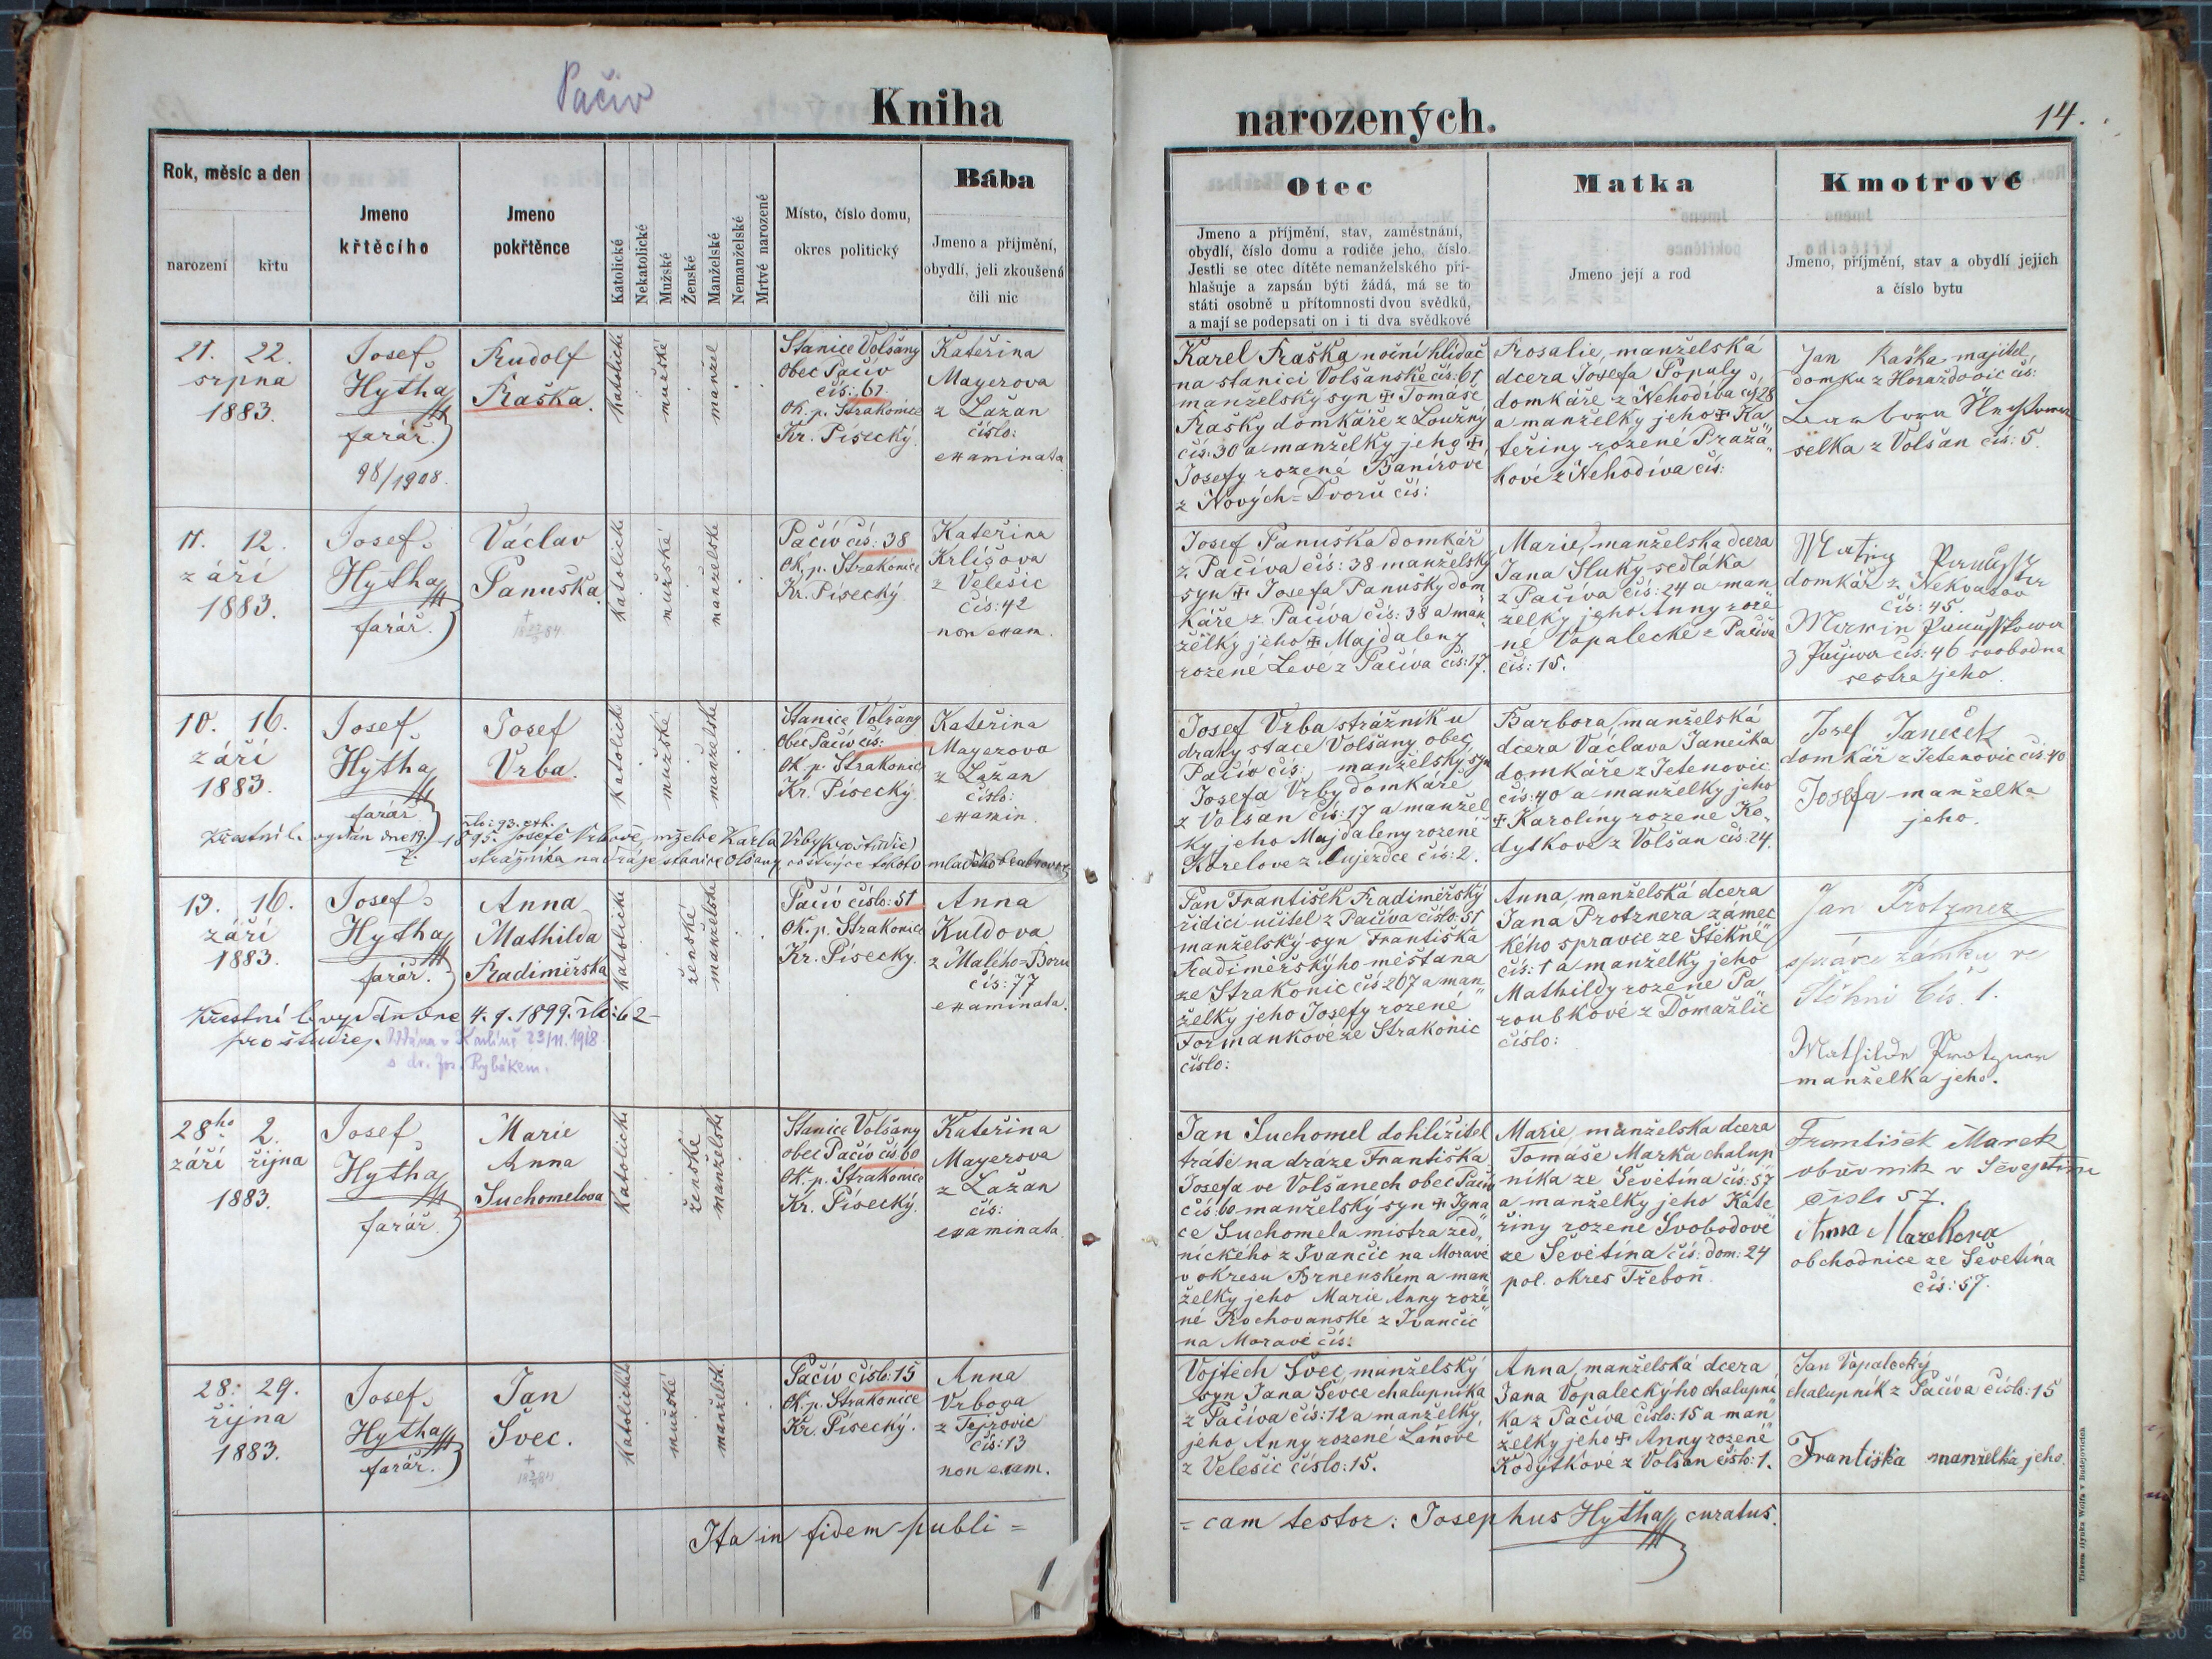 Pačiv
Kniha
narozených.
14.
Rok, měsíc a den
narození
křtu
Jmeno
křtěcího
Jmeno
pokřtěnce
Katolické
Nekatolické
Mužské
Ženské
Manželské
Nemanželské
Mrtvé narozené
Místo, číslo domu,
okres politický
Bába
Jmeno a příjmění,
obydlí, jeli zkoušená
čili nic
Otec
Jmeno a příjmění, stav, zaměstnání,
obydlí, číslo domu a rodiče jeho, číslo.
Jestli se otec dítěte nemanželského při-
hlašuje a zapsán býti žádá, má se to
státi osobně u přítomnosti dvou svědků,
a mají se podepsati on i ti dva svědkové
Matka
Jmeno její a rod
Kmotrové
Jmeno, příjmění, stav a obydlí jejich
a číslo bytu
21. 22.
srpna
1883.
Josef
Hytha
farář.
98/1908.
Rudolf
Raška.
katolické
mužské
manžel
Stanice Volšany
obec Pačiv
čís: 61
ok. p. Strakonice
Kr. Písecký.
Kateřina
Mayerova
z Lažan
číslo:
examinata
Karel Raška noční hlídač
na stanici Volšanské čís: 61
manželský syn ✠ Tomáše
Rašky domkáře z Loužný
čís: 30 a manželky jeho ✠
Josefy rozené Banírové
z Nových-Dvorů čís:
Rosalie, manželská
dcera Josefa Populy
domkáře z Nehodiva čís 28
a manželky jeho ✠ Ka„
teřiny rozené Pražá„
kové z Nehodiva čís:
Jan Raška majitel
domku z Horažďovic čís:
selka z Volšan čís: 5.
11. 12.
září
1883.
Josef
Hytha
farář.
Václav
Panuška.
katolické
mužské
manželské
Pačiv čís: 38
ok. p. Strakonice
Kr. Písecký
Kateřina
Krlišova
z Velešic
čís: 42
non exam.
Josef Panuška domkář
z Pačiva čís: 38 manželský
syn ✠ Josefa Panušky dom„
káře z Pačiva čís: 38 a man„
želky jeho ✠ Majdaleny
rozené Levé z Pačiva čís: 17.
Marie, manželska dcera
Jana Sluky sedláka
z Pačiva čís: 24 a man„
želky jeho Anny roze„
né Vopalecké z Pačiva
čís: 15.
domkář z Nekvasov
čís: 45.
z Pačiva čís: 46 svobodna
sestra jeho.
10. 16.
září
1883.
Josef
Hytha
farář
Josef
Vrba.
katolické
mužské
manželské
Stanice Volšany
obec Pačiv čís:
ok. p. Strakonice
Kr. Písecký
Kateřina
Mayerova
z Lažan
číslo:
examin.
Josef Vrba strážník u
drahy stace Volšany obec
Pačiv čís: manželský syn
Josefa Vrby domkáře
z Volšan čís: 17 a manžel„
ky jeho Majdaleny rozené
Korelove z Oujezdce čís: 2.
Barbora manželská
dcera Václava Janečka
domkáře z Jetenovic
čís: 40 a manželky jeho
✠ Karolíny rozené Ko„
dytkové z Volšan čís: 24.
Josef Janeček
domkář z Jetenovic čís: 40
Josefa manželka
jeho.
13. 16.
září
1883.
Josef
Hytha
farář.
Anna
Mathilda
Radiměrska
katolické
ženské
manželské
Pačiv číslo: 51
ok. p. Strakonice
Kr. Písecky.
Anna
Kuldova
z Malého-Boru
čís: 77
examinata.
Křestní l. vydán dne 4.9.1899. čís: 62
pro studie. Vdána v Karlíně 23/11. 1918
s dr. Jos. Rybákem.
Pan František Radiměrský
řidící učitel z Pačiva číslo: 51
manželský syn Františka
Radiměrskýho měštana
ze Strakonic čís 207 a man„
želky jeho Josefy rozené
Formankové ze Strakonic
číslo:
Anna, manželská dcera
Jana Protznera zámec„
kého spravce ze Stěkně
čís: 1 a manželky jeho
Mathildy rozené Pa„
roubkové z Domažlic
číslo:
Jan Protzner
správce zámku ve
Štěkni čís. 1.
Mathilde Protzner
manželka jeho.
28ho 2.
září října
1883.
Josef
Hytha
farář.
Marie
Anna
Suchomelova
katolické
ženské
manželské
Stanice Volšany
obec Pačiv čís 60
ok. p. Strakonice
Kr. Písecký.
Kateřina
Mayerova
z Lažan
čís:
examinata.
Jan Suchomel dohlížitel
tratě na dráze Františka
Josefa ve Volšanech obec Pačiv
čís: 60 manželský syn ✠ Igna„
ce Suchomela mistra zed„
nického z Ivančic na Moravě
v okresu Brnenském a man„
želky jeho Marie Anny roze„
né Rochovanské z Ivančic
na Moravě čís:
Marie manželska dcera
Tomáše Marka chalup„
níka ze Ševětína čís: 57
a manželky jeho Kate„
řiny rozené Svobodové
ze Ševětína čís: dom: 24
pol. okres Třeboň.
František Marek
číslo 57.
Anna Marekova
obchodnice ze Ševětína
čís: 57.
28. 29.
října
1883.
Josef
Hytha
farář.
Jan
Švec.
katolické
mužské
manželsk.
Pačiv číslo: 15
ok. p. Strakonice
Kr. Písecký.
Anna
Vrbova
z Tejřovic
čís: 13
non exam.
Vojtěch Švec manželský
syn Jana Ševce chalupníka
z Pačiva čís: 12 a manželky
jeho Anny rozené Laňové
z Velešic číslo: 15.
Anna manželská dcera
Jana Vopaleckýho chalupní„
ka z Pačiva číslo: 15 a man„
želky jeho ✠ Anny rozené
Kodýtkové z Volšan číslo: 1.
Jan Vopalecký
chalupník z Pačiva číslo: 15
Františka manželka jeho.
Ita in fidem publi =
= cam testor: Josephus Hytha curatus.
Tiskem Hynka Wolfa v Budějovicích